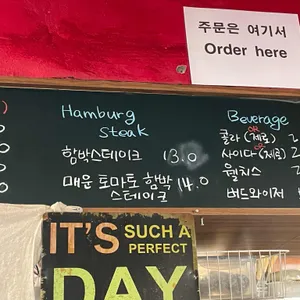 주문은 여기서
Order here
Hamburg
Steak
함박스테이크 13.0
매운 토마토 함박 14.0
스테이크
Beverage
콜라 OR (제로) 2
사이다 OR (제로) 2
웰치스 2
버드와이저
IT'S SUCH A
PERFECT
DAY